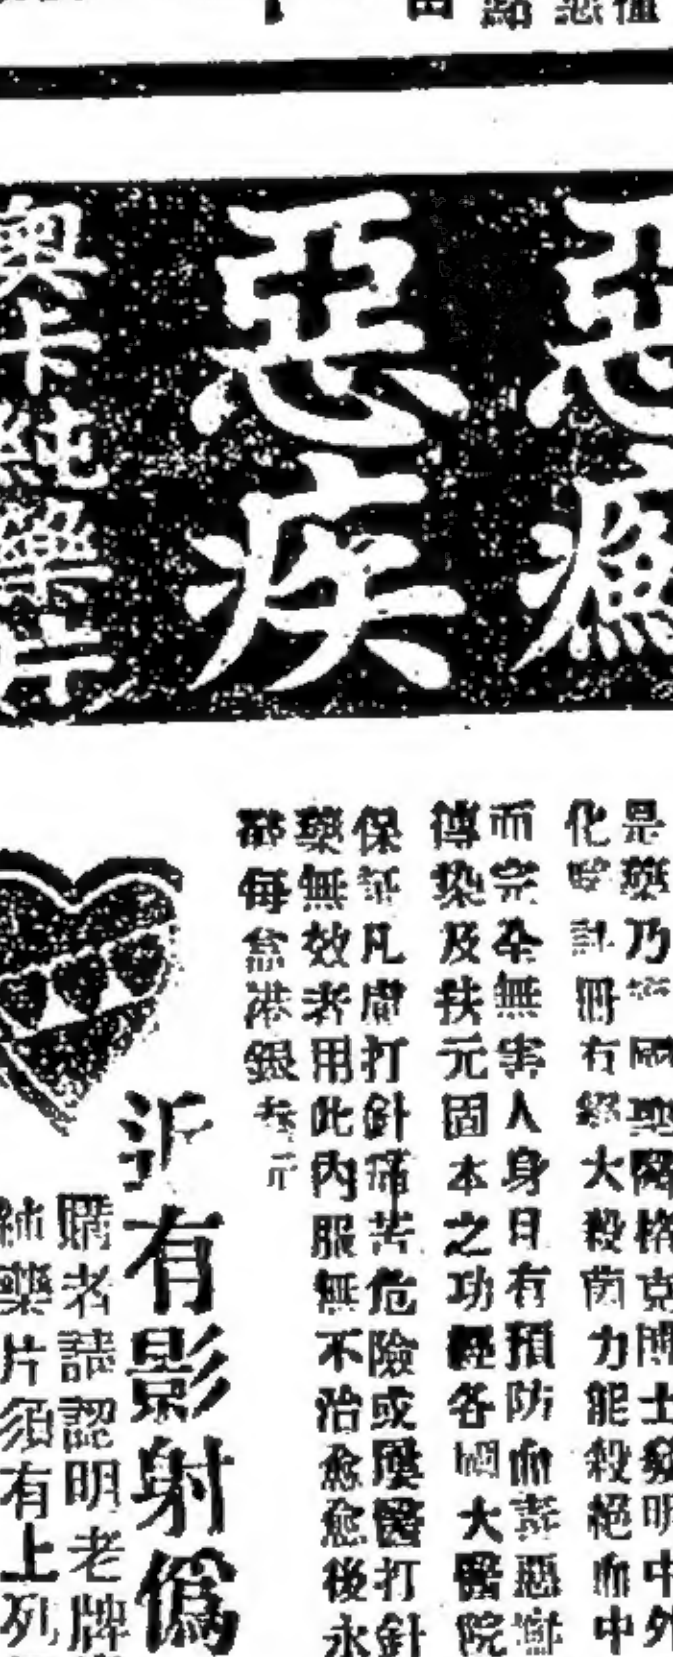 惡癩
惡疾
奧卡純藥片
是藥乃德國聖陶格克博士發明中外
化驗註冊有絕大殺菌力能殺絕血中
而完全無害人身且有預防血毒惡瘡
傳染及扶元固本之功經各國大醫院
保証凡慮打針痛苦危險或屢醫打針
藥無效者用此內服無不治愈愈後永
每盒港銀
近有影射偽
購者誌認明老牌
純藥片須有上列